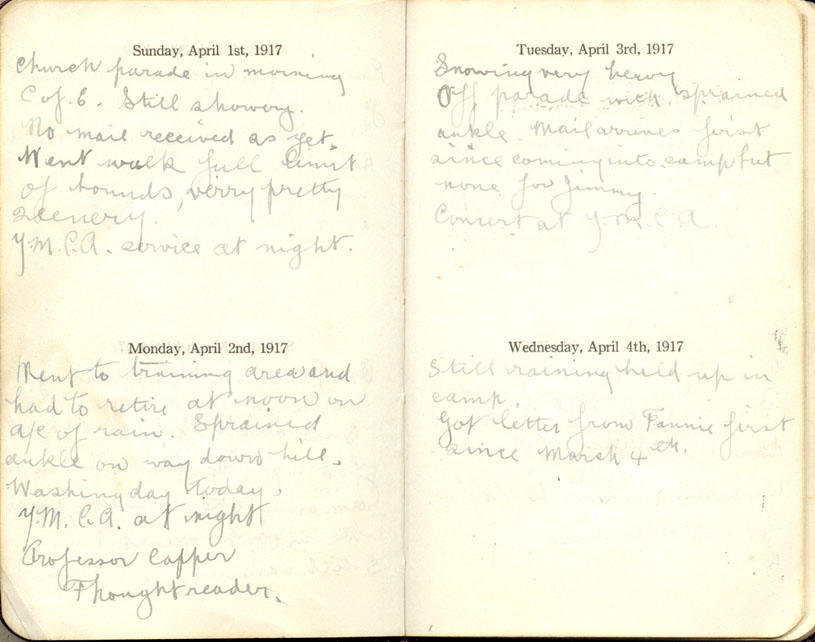 Sunday, April 1st, 1917
Church parade in morning
C of E. Still showery.
No mail received as yet.
Went walk full limit
of bounds, verry pretty
scenery.
Y.M.C.A. service at night.
Monday, April 2nd, 1917
Went to training area and
had to retire at noon on
a/c of rain. Sprained
ankle on way down hill.
Washing day today.
Y.M.C.A. at night
Professor Capper
Thought reader.
Tuesday, April 3rd, 1917
Snowing very heavy
Off parade with sprained
ankle. Mail arrives first
since coming into camp but
none for Jimmy.
Concert at Y.M.C.A.
Wednesday, April 4th, 1917
Still raining held up in
camp.
Got letter from Fannie first
since March 4th.